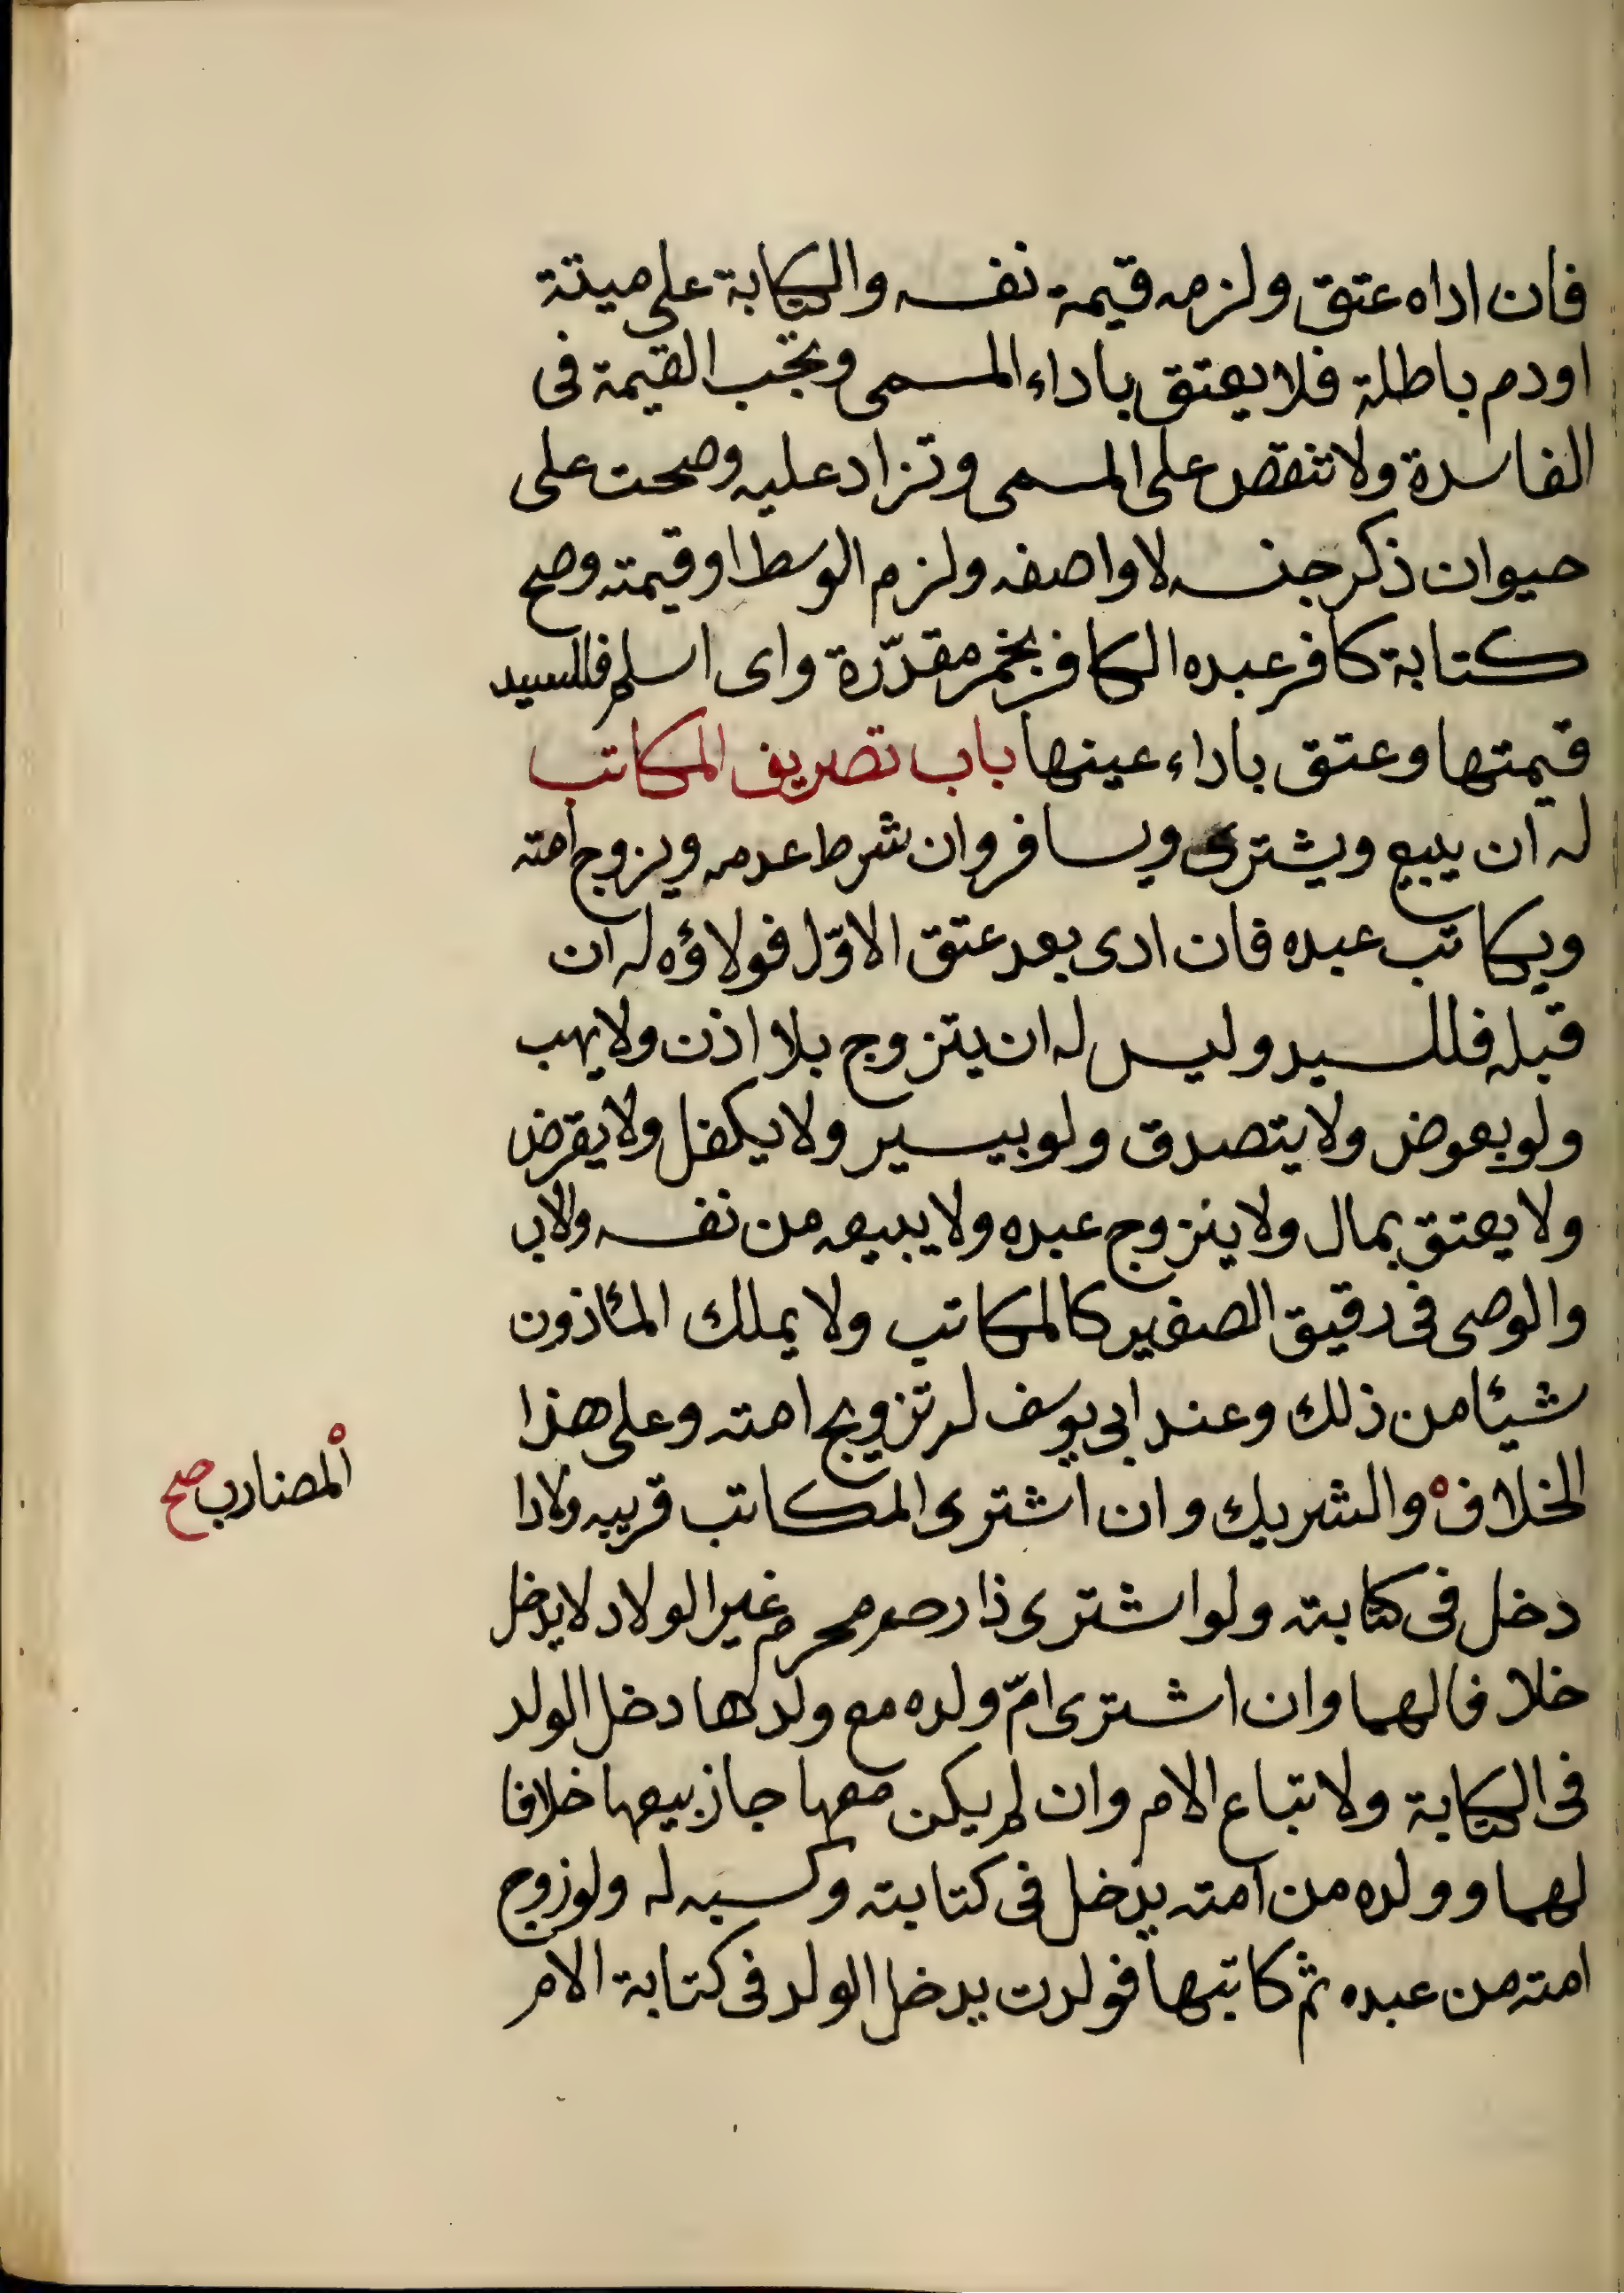 فان اداه عتق ولزمه قيمة نفسه والكتابة على ميتة
او دم باطلة فلا يعتق باداء المسمى وتجب القيمة فى
الفاسدة ولا تنقص على المسمى وتزاد عليه وصحت على
حيوان ذكر جنسه لا واصفه ولزم الوسط او قيمته وصح
كتابة كافر عبده الكافر بخمر مقدّرة واى اسلم فللسيد
قيمتها وعتق باداء عينها باب تصريف المكاتب
له ان يبيع ويشترى ويسافر وان شرط عدمه ويزوج امته
ويكاتب عبده فان ادى بعد عتق الاوّل فولاؤه له ان
قبله فللسيد وليس له ان يتزوج بلا اذن ولا يهب
ولو بعوض ولا يتصدق ولو بيسير ولا يكفل ولا يقرض
ولا يعتق بمال ولا يتزوج عبده ولا يبيعه من نفسه والاب
والوصى فى رقيق الصغير كالمكاتب ولا يملك المأذون
شيئا من ذلك وعند ابى يوسف له تزويج امته وعلى هذا
الخلاف والشريك وان اشترى المكاتب قريبه ولادا
المضارب صح
دخل فى كتابته ولو اشترى ذا رحم محرم غير الولاد لا يدخل
خلافا لهما وان اشترى امّ ولده مع ولدها دخل الولد
فى الكتابة ولا تباع الام وان لم يكن معها جاز بيعها خلافا
لهما وولده من امته يدخل فى كتابته وكسبه له ولو زوج
امته من عبده ثم كاتبها فولدت يدخل الولد فى كتابة الام